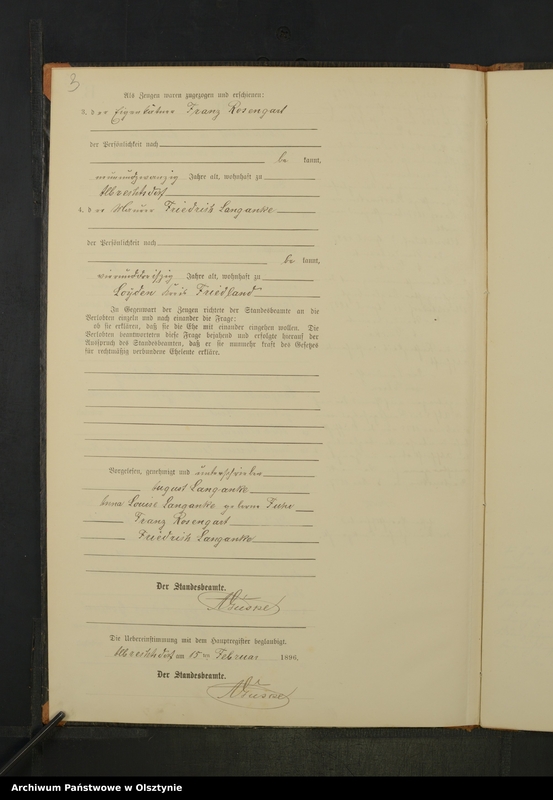 3
Als Zeugen waren zugezogen und erschienen:
3. der Eigenkätner Franz Rosengart
der Persönlichkeit nach
be kannt,
neunundzwanzig Jahre alt, wohnhaft zu
Albrechtsdorf
4. der Maurer Friedrich Langanke
der Persönlichkeit nach
be kannt,
vierunddreißig Jahre alt, wohnhaft zu
Loyden Kreis Friedland
In Gegenwart der Zeugen richtete der Standesbeamte an die
Verlobten einzeln und nach einander die Frage:
ob sie erklären, daß sie die Ehe mit einander eingehen wollen. Die
Verlobten beantworteten diese Frage bejahend und erfolgte hierauf der
Ausspruch des Standesbeamten, daß er sie nunmehr kraft des Gesetzes
für rechtmäßig verbundene Eheleute erkläre.
Vorgelesen, genehmigt und unterschrieben
August Langanke
Anna Louise Langanke geborne
Franz Rosengart
Friedrich Langanke
Der Standesbeamte.
Die Uebereinstimmung mit dem Hauptregister beglaubigt.
Albrechtsdorf am 15ten Februar 1896.
Der Standesbeamte.
Archiwum Państwowe w Olsztynie